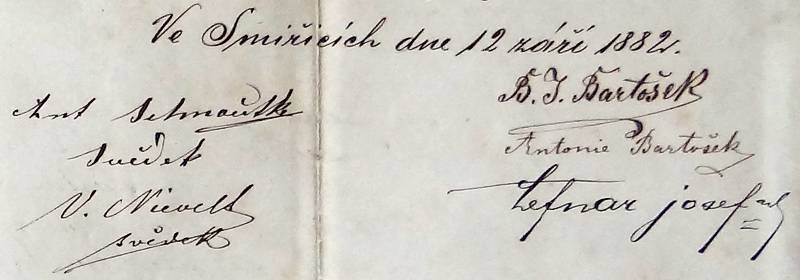 Ve Smiřicích dne 12 září 1882.
B. J. Bartošek
Ant
svědek
Antonie Bartošek
V. Nievelt
svědek
Lefnar josef